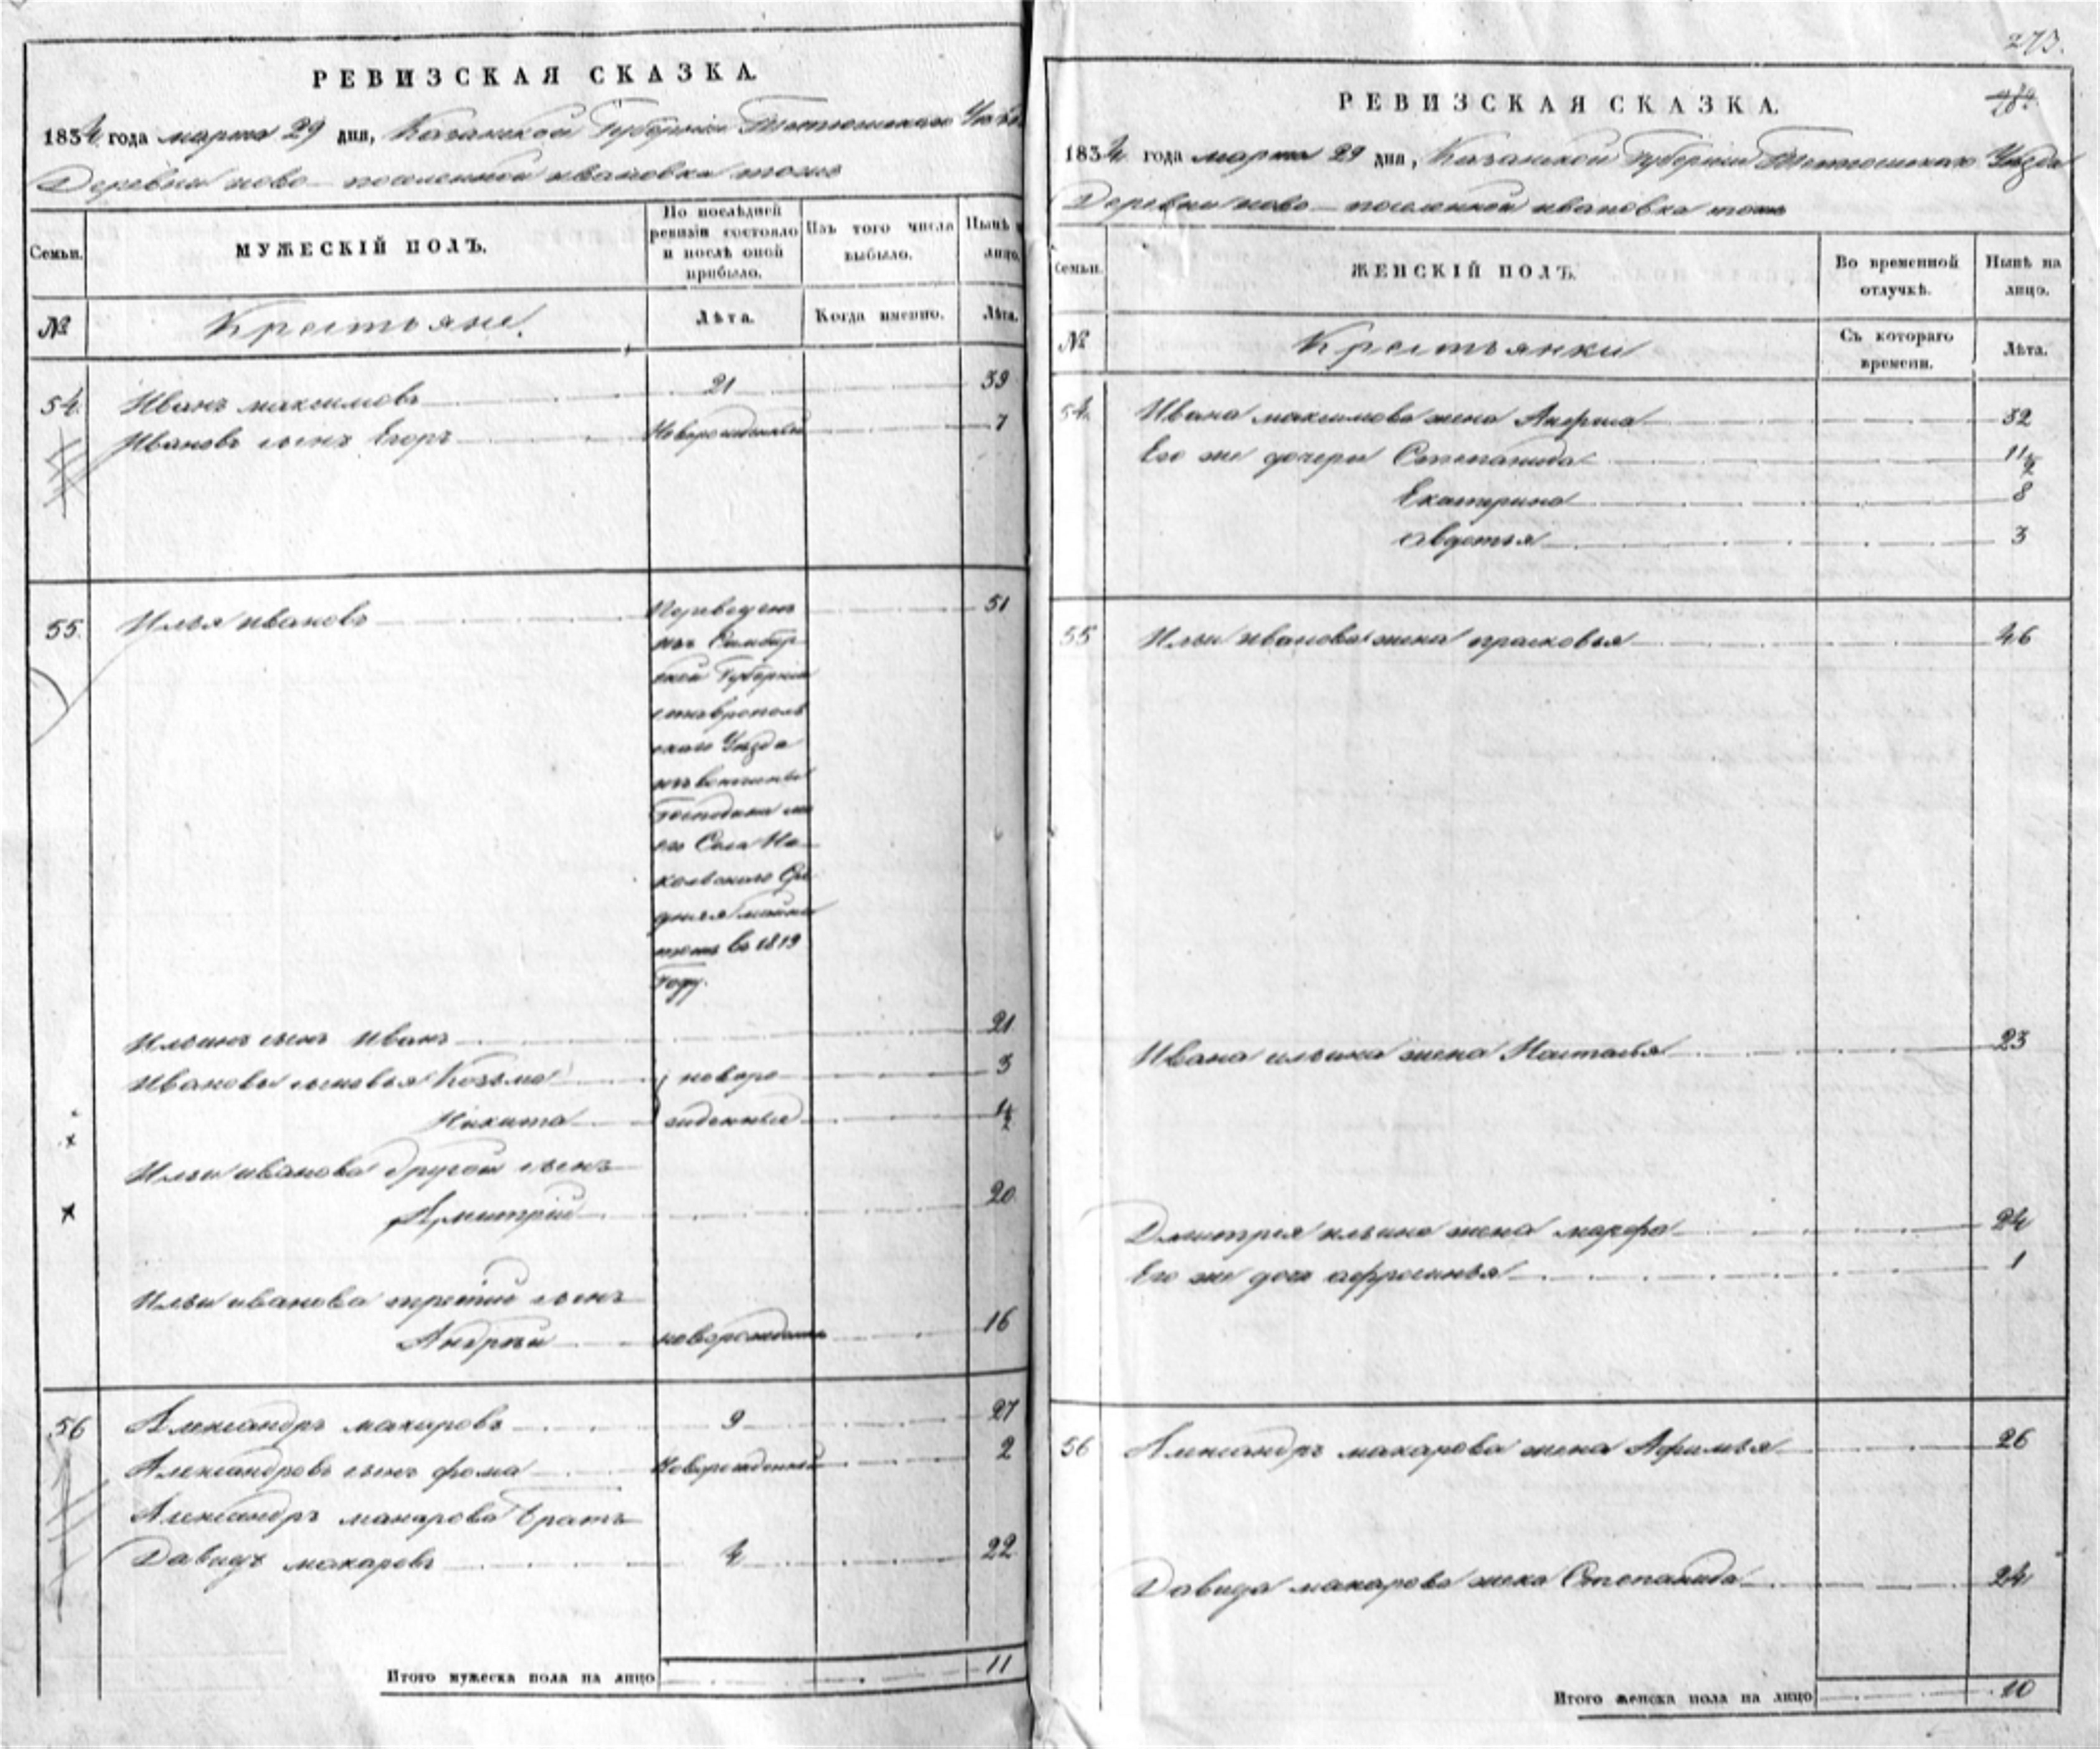 РЕВИЗСКАЯ СКАЗКА.
1834 года марта 29 дня, Казанской Губернии Тетюшскаго Уѣзда
Деревни ново-поселенной ивановка тожъ
Семьи.
МУЖЕСКІЙ ПОЛЪ.
По послѣдней ревизіи состояло и послѣ оной прибыло.
Изъ того числа выбыло.
Нынѣ на лицо.
№
Крестьяне.
Лѣта.
Когда именно.
Лѣта.
54. Иванъ максимовъ 21 39
Ивановъ сынъ Егоръ Новорожденный 7
55. Илья ивановъ Переведенъ 51
изъ Симбир
ской Губерніи
ставрополь
скаго Уѣзда
изъ вотчины
Господина мо
его Села Ни
кольскаго Сре
дняя майна
тожъ въ 1819
Году.
Ильинъ сынъ Иванъ 21
Ивановы сыновья Козьма новоро 3
Никита жденные 1/2
Ильи иванова другой сынъ
Дмитрій 20
Ильи иванова третій сынъ
Андрѣй новорожденн 16
56 Александръ макаровъ 9 27
Александровъ сынъ фома Новорожденный 2
Александръ макарова братъ
Давидъ макаровъ 4 22
Итого мужеска пола на лицо 11
273.
РЕВИЗСКАЯ СКАЗКА.
1834 года марта 29 дня, Казанской Губерніи Тетюшскаго Уѣзда
Деревни ново-поселенной ивановка тожъ
Семьи.
ЖЕНСКІЙ ПОЛЪ.
Во временной отлучкѣ.
Нынѣ на лицо.
№
Крестьянки
Съ котораго времени.
Лѣта.
54. Ивана максимова жена Анфиса 32
Его же дочери Степанида 11 1/2
Екатерина 8
авдотья 3
55 Ильи иванова жена прасковья 46
Ивана ильина жена Наталья 23
Дмитрея ильина жена марфа 24
Его же дочь афросинья 1
56 Александръ макарова жена Афимья 26
Давида макарова жена Степанида 24
Итого женска пола на лицо 10